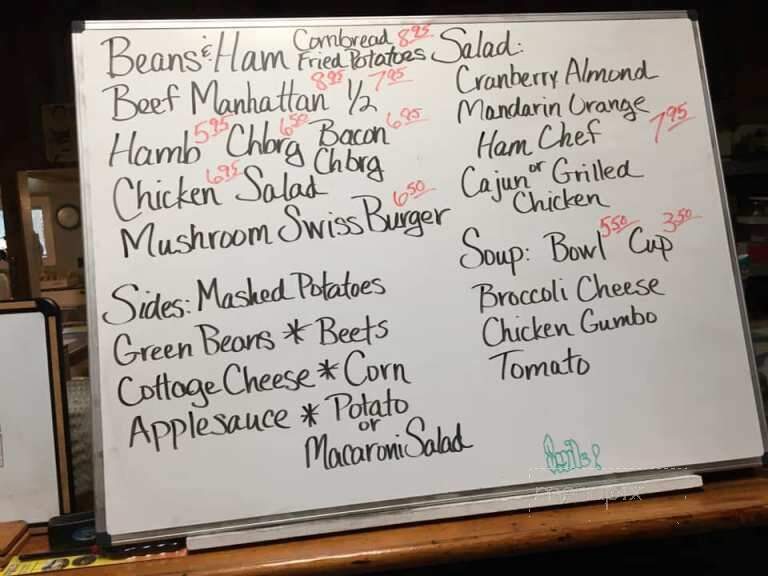 Beans & Ham Cornbread Fried Potatoes 8.95
Beef Manhattan 8.95 1/2 7.95
Hamb 5.95 Chbrg 6.50 Bacon Chbrg 6.95
Chicken Salad 6.95
Mushroom Swiss Burger 6.50
Sides: Mashed Potatoes
Green Beans * Beets
Cottage Cheese * Corn
Applesauce * Potato
or
Macaroni Salad
Salad:
Cranberry Almond
Mandarin Orange
Ham Chef 7.95
Cajun or Grilled
Chicken
Soup: Bowl 5.50 Cup 3.50
Broccoli Cheese
Chicken Gumbo
Tomato
menupix